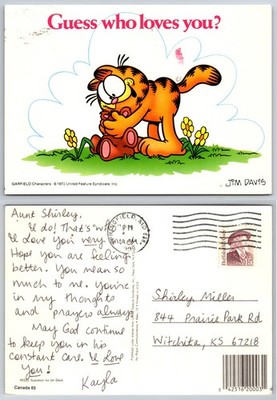 Guess who loves you?
GARFIELD Characters: © 1978 United Feature Syndicate, Inc.
JIM DAVIS
Aunt Shirley,
I do! That's w
I love you very much
Hope you are feeling
better. You mean so
much to me. you're
in my thoughts
and prayers always.
May God continue
to keep you in his
constant care. I Love
You!
Kayla
Canada 85
PM
Shirley Miller
844 Prairie Park Rd
Witchita, KS 67218
0 42516 20003